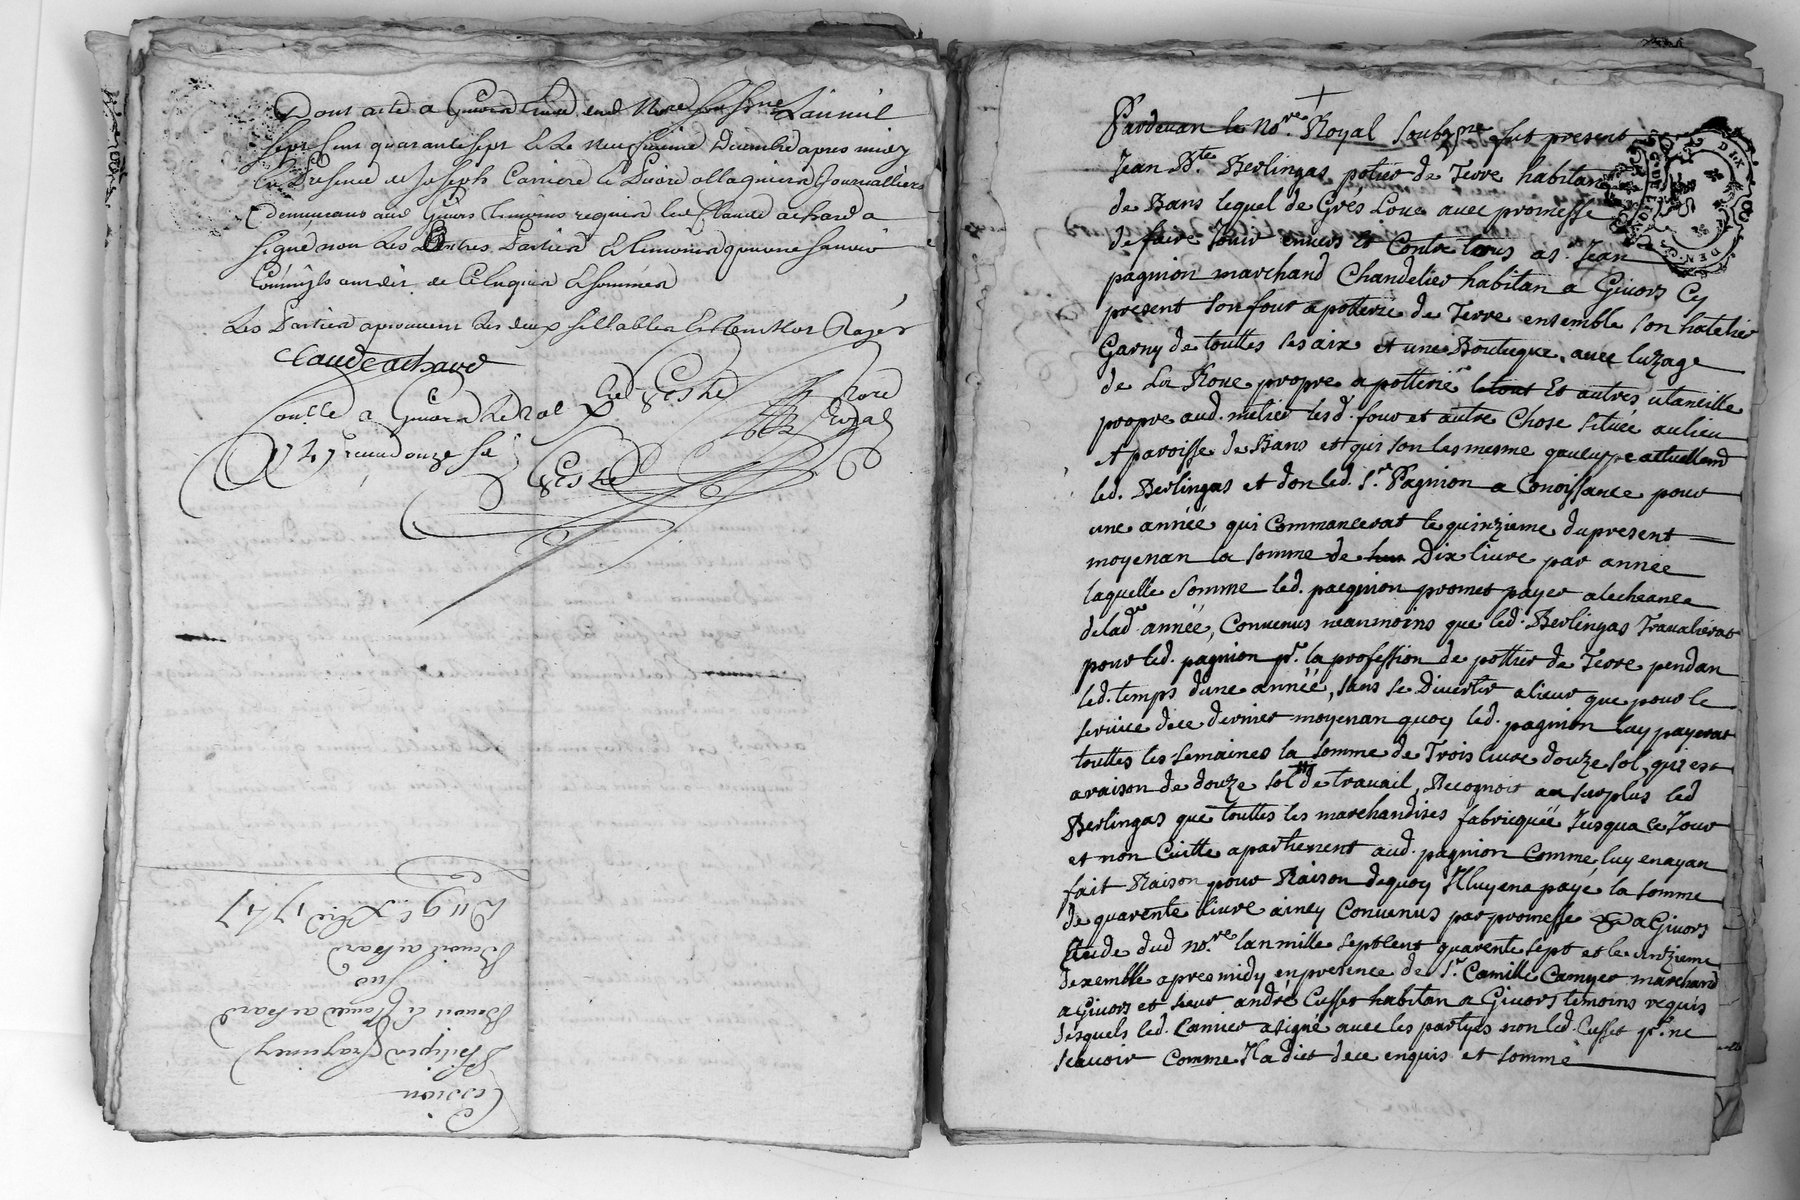 Dont acte a Givors Etude dud Nore soussigne L'an mil
sept cent quarante sept & le neufvieme Decembre apres midy
En Presence de Joseph Carriere & Pierre allaguiera Journalliers
Demeurans aud Givors Temoins requis led Claude achard a
signé non les autres Parties & temoins pour ne savoir
comm'ils ont dit de ce Enquis & sommés
Les Parties aprouvent les deux sillables Rayés
Claude achard
Conllé a Givors le
1747 Reçu douze sols
Geste
Nore Royal
Geste
Cession
Philipin
Benoit & Claude achard
Sur
Benoit achard
Du 9e Xbre 1747
Pardevan le No.re Royal soubz.ne fut present
Jean B.te Berlingas potier de Terre habitan
de Bans lequel de Grés Loue avec promesse
de faire Jouir envers et Contre tous a s. Jean
pagnion marchand Chandelier habitan a Givors Cy
present son four a potterie de Terre ensemble son hatelier
Garny de touttes les aix et une Bouticque, avec luzage
de La Roue propre a potterie le tout Et autres utansille
propre aud. metier lesd. four et autre Chose située au lieu
& paroisse de Bans et qui son les mesme qu'occupe actuellemd
led. Berlingas et don led. S.r Pagnion a Conoissance pour
une année qui Commancerat le quinzieme du present
moyenan la somme de Dix livre par année
laquelle Somme led. pacgnion promet payer a lecheance
de lad. année, Convenus neanmoins que led. Berlingas Travalierat
pour led. pagnion p.r la profession de pottier de Terre pendan
led. temps dune année, sans se Divertir alieur que pour le
service dece dernier moyenan quoy led. pagnion luy payerat
touttes les semaines la somme de Trois livre douze sol, qui est
a raison de douze sol de travail, Recognoit au surplus led
Berlingas que touttes les marchandises fabricquéé Jusqua ce Jour
et non Cuitte apartienent aud. pagnion Comme luy enayan
fait Raison pour Raison dequoy Il luy ena payé la somme
de quarente livre ainsy Convenus par promesse &c a Givors
Etude dud no.re lan mille sept cent quarente sept et le onzieme
Dexemble apres midy en presence de S.r Camille Camyer marchand
a Givors et sieur andré Cusset habitan a Givors temoins requis
desquels led. Camier a signé avec les partyes non led. Cusset p.r ne
scavoir Comme Il a dict dece enquis et sommé